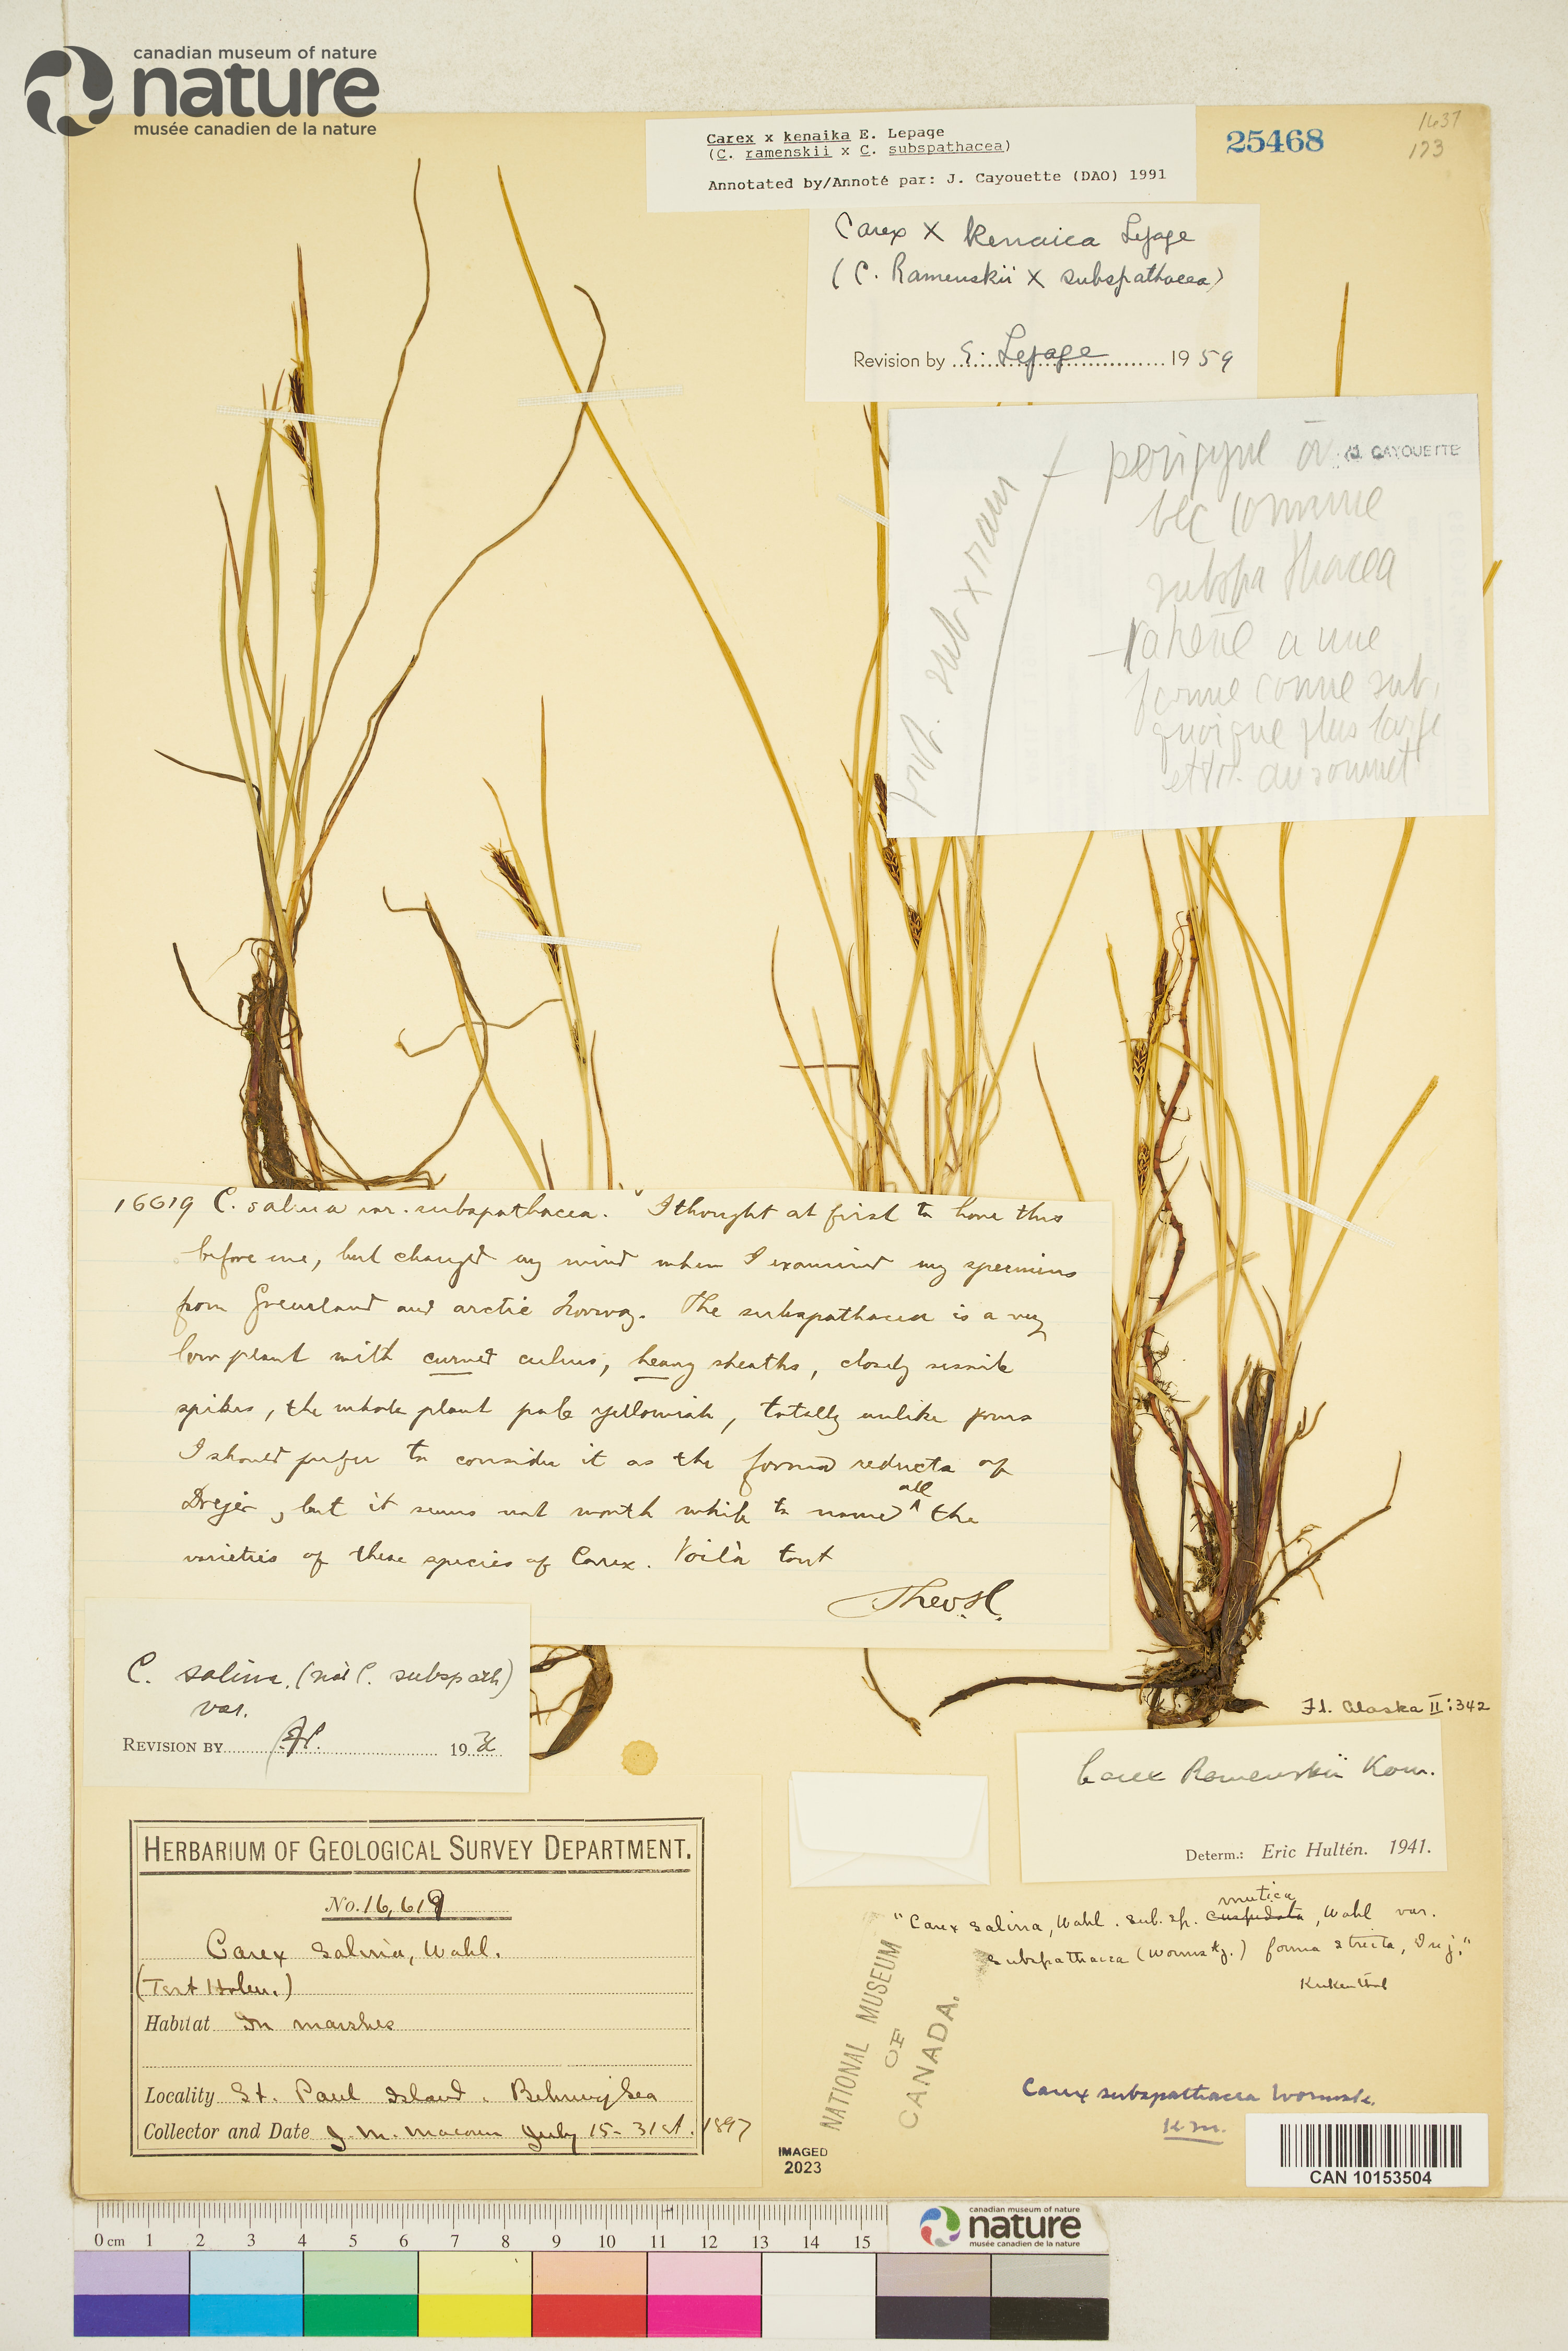 canadian museum of nature
nature
musée canadien de la nature
Carex x kenaika E. Lepage
(C. ramenskii x C. subspathacea)
Annotated by/Annoté par: J. Cayouette (DAO) 1991
25468
1637
173
Carex X kenaica Lepage
(C. Ramenskii X subspathacea)
Revision by E. Lepage 1959
J. CAYOUETTE
perigyne
bec comme
subspathacea
a une
forme comme sub.
quoique plus large
au sommet
sub x ram
16619 C. salina var. subspathacea. "I thought at first to have this
before me, but changed my mind when I examined my specimens
from Greenland and arctic Norway. The subspathacea is a very
low plant with curved culms, heavy sheaths, closely sessile
spikes, the whole plant pale yellowish, totally unlike yours
I should prefer to consider it as the forma reducta of
Drejer, but it seems not worth while to name all the
varieties of these species of Carex. Voilà tout
Theo. H.
C. salina. (not C. subspath)
var.
REVISION BY 193
Fl. Alaska II:342
Carex Ramenskii Kom.
Determ.: Eric Hultén. 1941.
HERBARIUM OF GEOLOGICAL SURVEY DEPARTMENT.
No. 16,619
Carex salina, Wahl.
(Test Holm.)
Habitat In marshes
Locality St. Paul Island, Behring Sea
Collector and Date J. M. Macoun July 15-31st. 1897
"Carex salina, Wahl. sub. sp. cuspidata mutica, Wahl var.
subspathacea (Wormskj.) forma stricta, Drej."
Kukenthal
NATIONAL MUSEUM
OF
CANADA.
Carex subspathacea Wormsk.
IMAGED
2023
CAN 10153504
0 cm 1 2 3 4 5 6 7 8 9 10 11 12 13 14 15
canadian museum of nature
nature
musée canadien de la nature